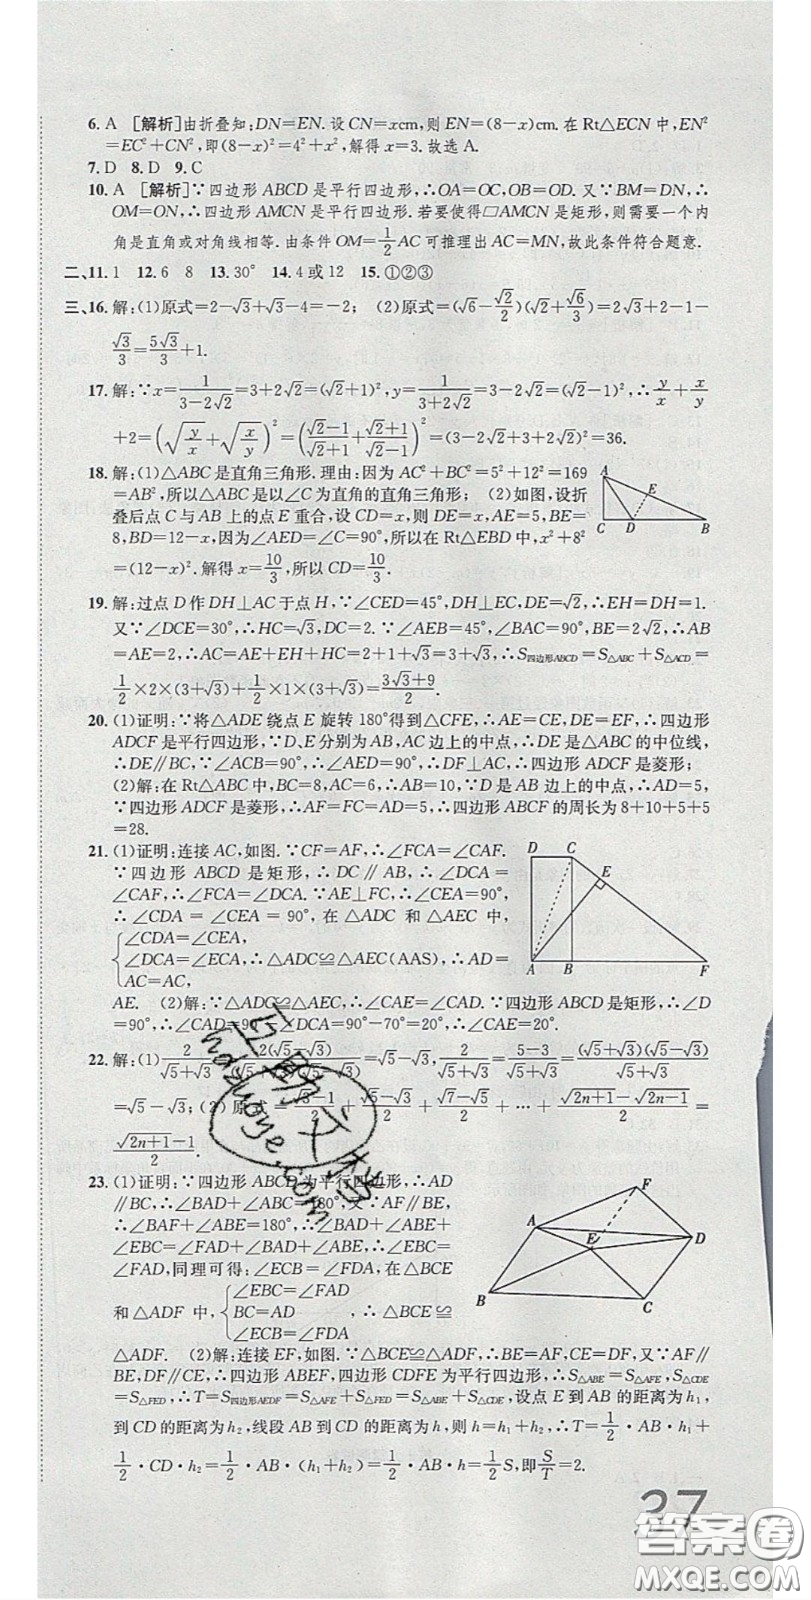 6. A [解析]由折叠知:DN=EN.设 CN=xcm,则 EN=(8-x)cm.在 Rt△ECN 中,EN²
=EC²+CN²,即(8-x)²=4²+x²,解得 x=3.故选 A.
7. D 8. D 9. C
10. A [解析]∵四边形 ABCD 是平行四边形,∴OA=OC,OB=OD.又∵BM=DN,∴
OM=ON,∴四边形 AMCN 是平行四边形.若要使得▱AMCN 是矩形,则需要一个内
角是直角或对角线相等.由条件 OM=1/2 AC 可推理出 AC=MN,故此条件符合题意.
二、11. 1 12. 6 8 13. 30° 14. 4 或 12 15. ①②③
三、16. 解:(1)原式=2-√3+√3-4=-2; (2)原式=(√6-√2/2)(√2+√6/3)=2√3+2-1-
√3/3=5√3/3+1.
17. 解:∵x=1/(3-2√2)=3+2√2=(√2+1)²,y=1/(3+2√2)=3-2√2=(√2-1)²,∴y/x+x/y
+2=(√(y/x)+√(x/y))²=((√2-1)/(√2+1)+(√2+1)/(√2-1))²=(3-2√2+3+2√2)²=36.
18. 解:(1)△ABC 是直角三角形.理由:因为 AC²+BC²=5²+12²=169
=AB²,所以△ABC 是以∠C 为直角的直角三角形; (2)如图,设折
叠后点 C 与 AB 上的点 E 重合,设 CD=x,则 DE=x,AE=5,BE=
8,BD=12-x,因为∠AED=∠C=90°,所以在 Rt△EBD 中,x²+8²
=(12-x)².解得 x=10/3,所以 CD=10/3.
A
E
C D B
19. 解:过点 D 作 DH⊥AC 于点 H,∵∠CED=45°,DH⊥EC,DE=√2,∴EH=DH=1.
又∵∠DCE=30°,∴HC=√3,DC=2.∵∠AEB=45°,∠BAC=90°,BE=2√2,∴AB
=AE=2,∴AC=AE+EH+HC=2+1+√3=3+√3,∴S四边形ABCD=S△ABC+S△ACD=
1/2×2×(3+√3)+1/2×1×(3+√3)=(3√3+9)/2.
20. (1)证明:∵将△ADE 绕点 E 旋转 180°得到△CFE,∴AE=CE,DE=EF,∴四边形
ADCF 是平行四边形,∵D、E 分别为 AB,AC 边上的中点,∴DE 是△ABC 的中位线,
∴DE∥BC,∵∠ACB=90°,∴∠AED=90°,∴DF⊥AC,∴四边形 ADCF 是菱形;
(2)解:在 Rt△ABC 中,BC=8,AC=6,∴AB=10,∵D 是 AB 边上的中点,∴AD=5,
∵四边形 ADCF 是菱形,∴AF=FC=AD=5,∴四边形 ABCF 的周长为 8+10+5+5
=28.
21. (1)证明:连接 AC,如图.∵CF=AF,∴∠FCA=∠CAF.
∵四边形 ABCD 是矩形,∴DC∥AB,∴∠DCA=
∠CAF,∴∠FCA=∠DCA.∵AE⊥FC,∴∠CEA=90°,
∴∠CDA=∠CEA=90°,在△ADC 和△AEC 中,
{∠CDA=∠CEA,
∠DCA=∠ECA,∴△ADC≌△AEC(AAS),∴AD=
AC=AC,
D C
E
A B F
AE. (2)解:∵△ADC≌△AEC,∴∠CAD=∠CAE.∵四边形 ABCD 是矩形,∴∠D
=90°,∴∠CAD=90°-∠DCA=90°-70°=20°,∴∠CAE=∠CAD=20°.
22. 解:(1)2/(√5+√3)=2(√5-√3)/=√5-√3,2/(√5+√3)=(5-3)/(√5+√3)=(√5+√3)(√5-√3)/(√5+√3)
=√5-√3; (2)原式=(√3-1)/2+(√5-√3)/2+(√7-√5)/2+…+(√(2n+1)-√(2n-1))/2=
(√(2n+1)-1)/2.
23. (1)证明:∵四边形 ABCD 为平行四边形,∴AD
∥BC,∴∠BAD+∠ABC=180°,又∵AF∥BE,
∴∠BAF+∠ABE=180°,∴∠BAD+∠ABE+
∠EBC=∠BAD+∠FAD+∠ABE,∴∠EBC=
∠FAD,同理可得:∠ECB=∠FDA.在△BCE
和△ADF 中,{∠EBC=∠FAD
BC=AD
∠ECB=∠FDA ,∴△BCE≌
F
A
E D
B C
△ADF. (2)解:连接 EF,如图.∵△BCE≌△ADF,∴BE=AF,CE=DF,又∵AF∥
BE,DF∥CE,∴四边形 ABEF,四边形 CDFE 为平行四边形,∴S△ABE=S△AFE,S△CDE
=S△FED,∴T=S四边形AEDF=S△AFE+S△FED=S△ABE+S△CDE,设点 E 到 AB 的距离为 h₁,
到 CD 的距离为 h₂,线段 AB 到 CD 的距离为 h,则 h=h₁+h₂,∴T=1/2·AB·h₁+
1/2·CD·h₂=1/2·AB·(h₁+h₂)=1/2·AB·h=1/2S,即S/T=2.
27
答案圈
MXQE.COM
hdzuoye.com